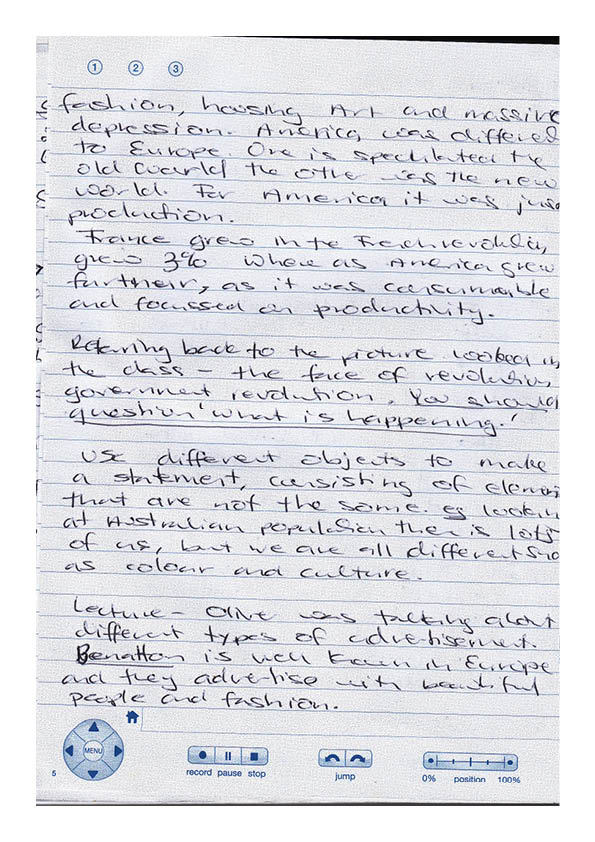 1 2 3
fashion, housing Art and massive
depression. America, was differed
to Europe. One is specilated the
old world the other was the new
world. For America it was jus
production.
France grew in the French revolution,
grew 3% where as America grew
furtheir, as it was consumable
and focussed on productivity.
Refering back to the picture looked in
the class – the face of revolution,
government revolution. You should
question 'what is happening.'
Use different objects to make
a statement, consisting of elemen
that are not the same. eg lookin
at Australian population there is lots
of us, but we are all different suc
as colour and culture.
Lecture – Olive was talking about
different types of advertisement.
Benatton is well known in Europe
and they advertise with beautiful
people and fashion.
MENU
record pause stop
jump
0% position 100%
5